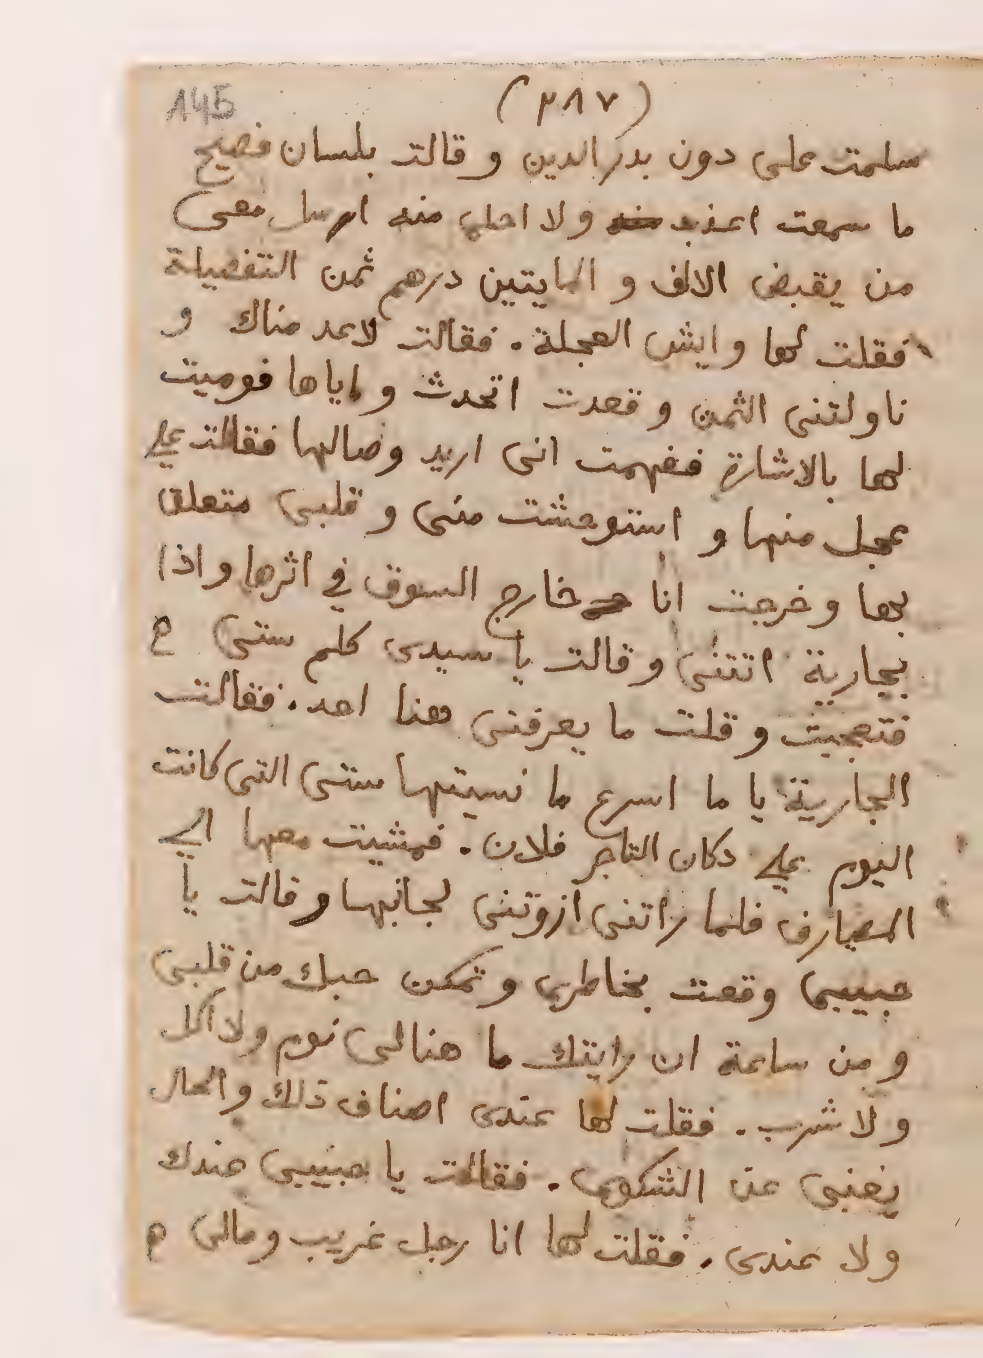 145
(٢٨٧)
سلمت على دون بدر الدين و قالت بلسان فصيح
ما سمعت اعذب منه ولا احلى منه ارسل معى
من يقبض الالف و المايتين درهم ثمن التفصيلة
فقلت لها و ايش العجلة . فقالت لاعد مناك و
ناولتنى الثمن و قعدت اتحدث و اياها فوميت
لها بالاشارة ففهمت انى اريد وصالها فقالت على
عجل منها و استوحشت منى و قلبى متعلق
بها و خرجت انا خارج السوق في اثرها و اذا
بجارية اتتنى و قالت يا سيدى كلم ستى
فتعجبت و قلت ما يعرفنى هنا احد . فقالت
الجارية يا ما اسرع ما نسيتها ستى التى كانت
اليوم على دكان التاجر فلان . فمشيت معها الى
المصارف فلما راتنى ازوتنى لجانبها و قالت يا
حبيبى وقعت بخاطرى و تمكن حبك من قلبى
و من ساعة ان رايتك ما هنا لى نوم ولا اكل
ولا شرب . فقلت لها عندى اصناف ذلك والحال
يغنى عن الشكوى . فقالت يا حبيبى عندك
ولا عندى . فقلت لها انا رجل غريب ومالى